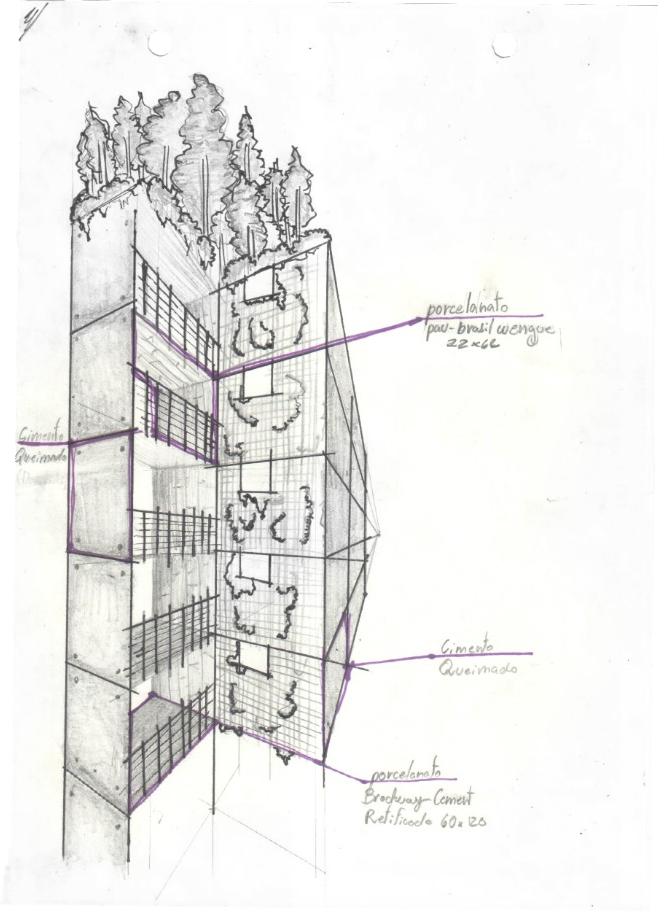 porcelanato
pau-brasil wengue
22x66
Cimento
Queimado
Cimento
Queimado
porcelanato
Brodway-Cement
Retificado 60x120